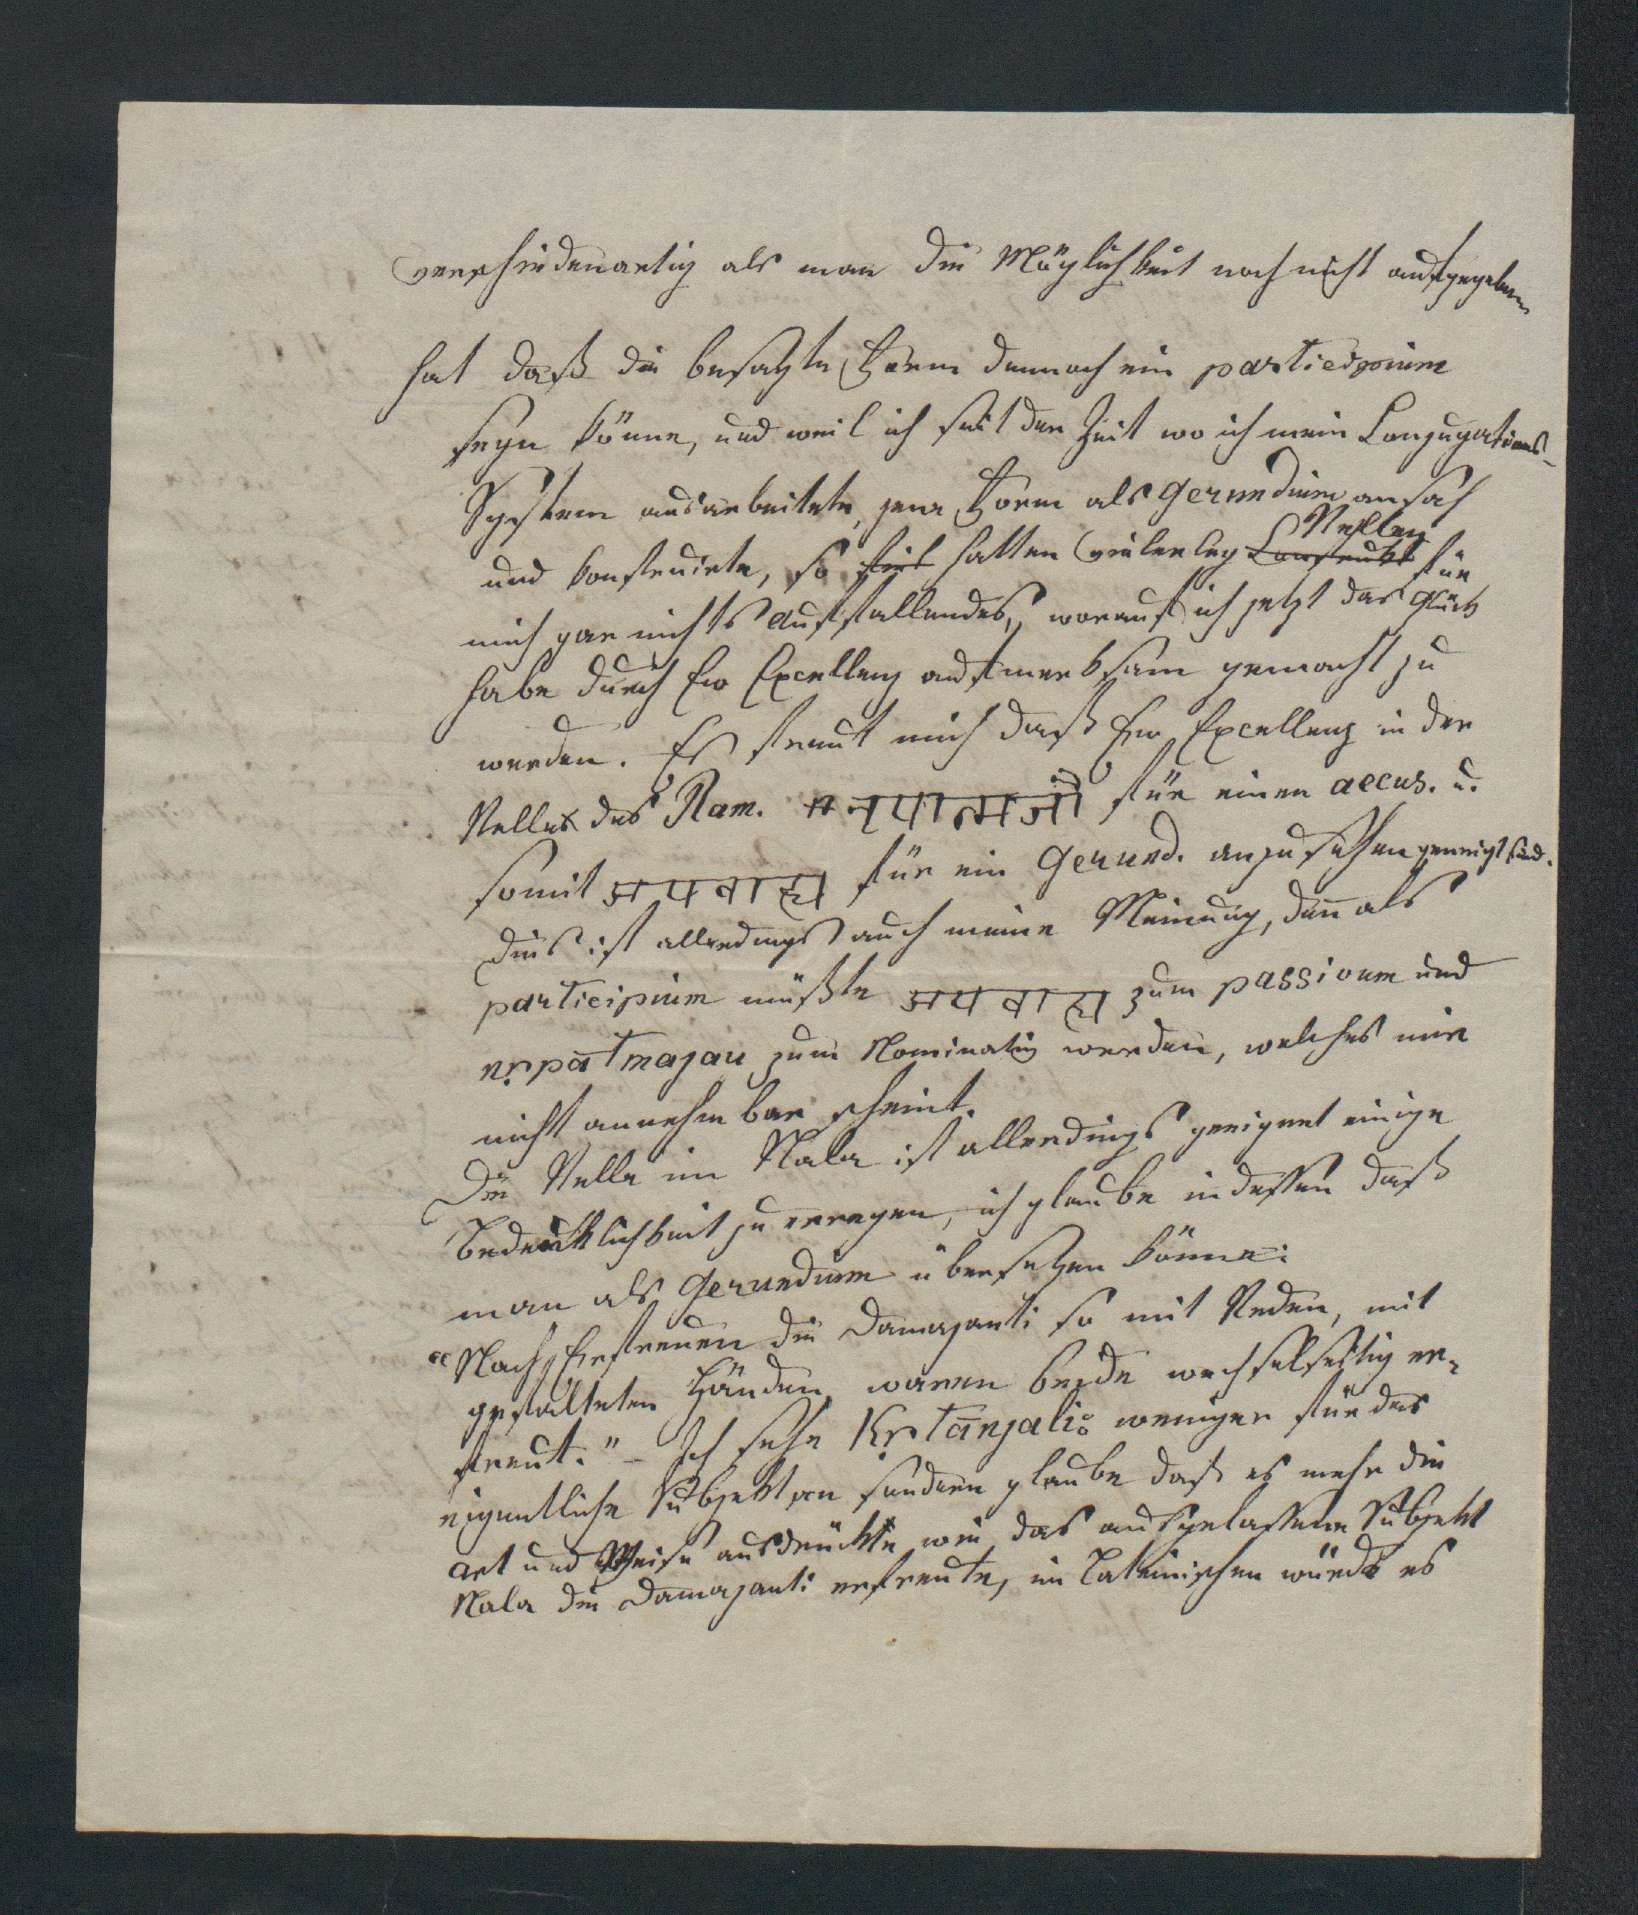 verschiedenartig als man die Möglichkeit noch nicht aufgegeben
hat daß die besagte Form dennoch ein participium
seyn könne, und weil ich seit der Zeit wo ich mein Conjugations-
System ausarbeitete, jene Form als Gerundium ansah
und konstruirte, so hatten vielerley Stellen für
mich gar nichts Auffallendes, worauf ich jetzt das Glück
habe durch Ew Excellenz aufmerksam gemacht zu
werden. Es freut mich daß Ew Excellenz in der
Stelle des Ram. नृपात्मजौ für einen accus. u.
somit अपवाह्य für ein Gerund. anzusehen geneigt sind.
dies ist allerdings auch meine Meinung, den̅ als
participium müßte अपवाह्य zum passivum und
nṛpātmajau zum Nominativ werden, welches mir
nicht annehmbar scheint.
Die Stelle im Nala ist allerdings geeignet einige
Bedenklichkeit zu erregen, ich glaube indessen daß
man als Gerundium übersetzen könne:
"Nach Erfreuen die Damajanti so mit Reden, mit
gefalteten Händen, waren beyde wechselseitig er-
freut." – Ich sehe Kṛtānjaliः weniger für das
eigentliche Subjekt an sondern glaube daß es mehr die
Art und Weise ausdrückte wie das ausgelassene Subjekt
Nala die Damajanti erfreute, im Lateinischen würde es